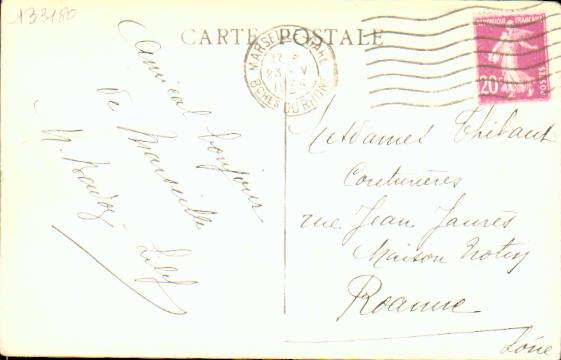 133180
CARTE POSTALE
MARSEILLE GARE
17
23 - V
BCHES DU RHONE
REPUBLIQUE FRANCAISE
20
POSTES
Amical bonjour
de Marseille
Mesdames Thibaut
Couturières
rue Jean Jaurès
Maison
Roanne
Loire